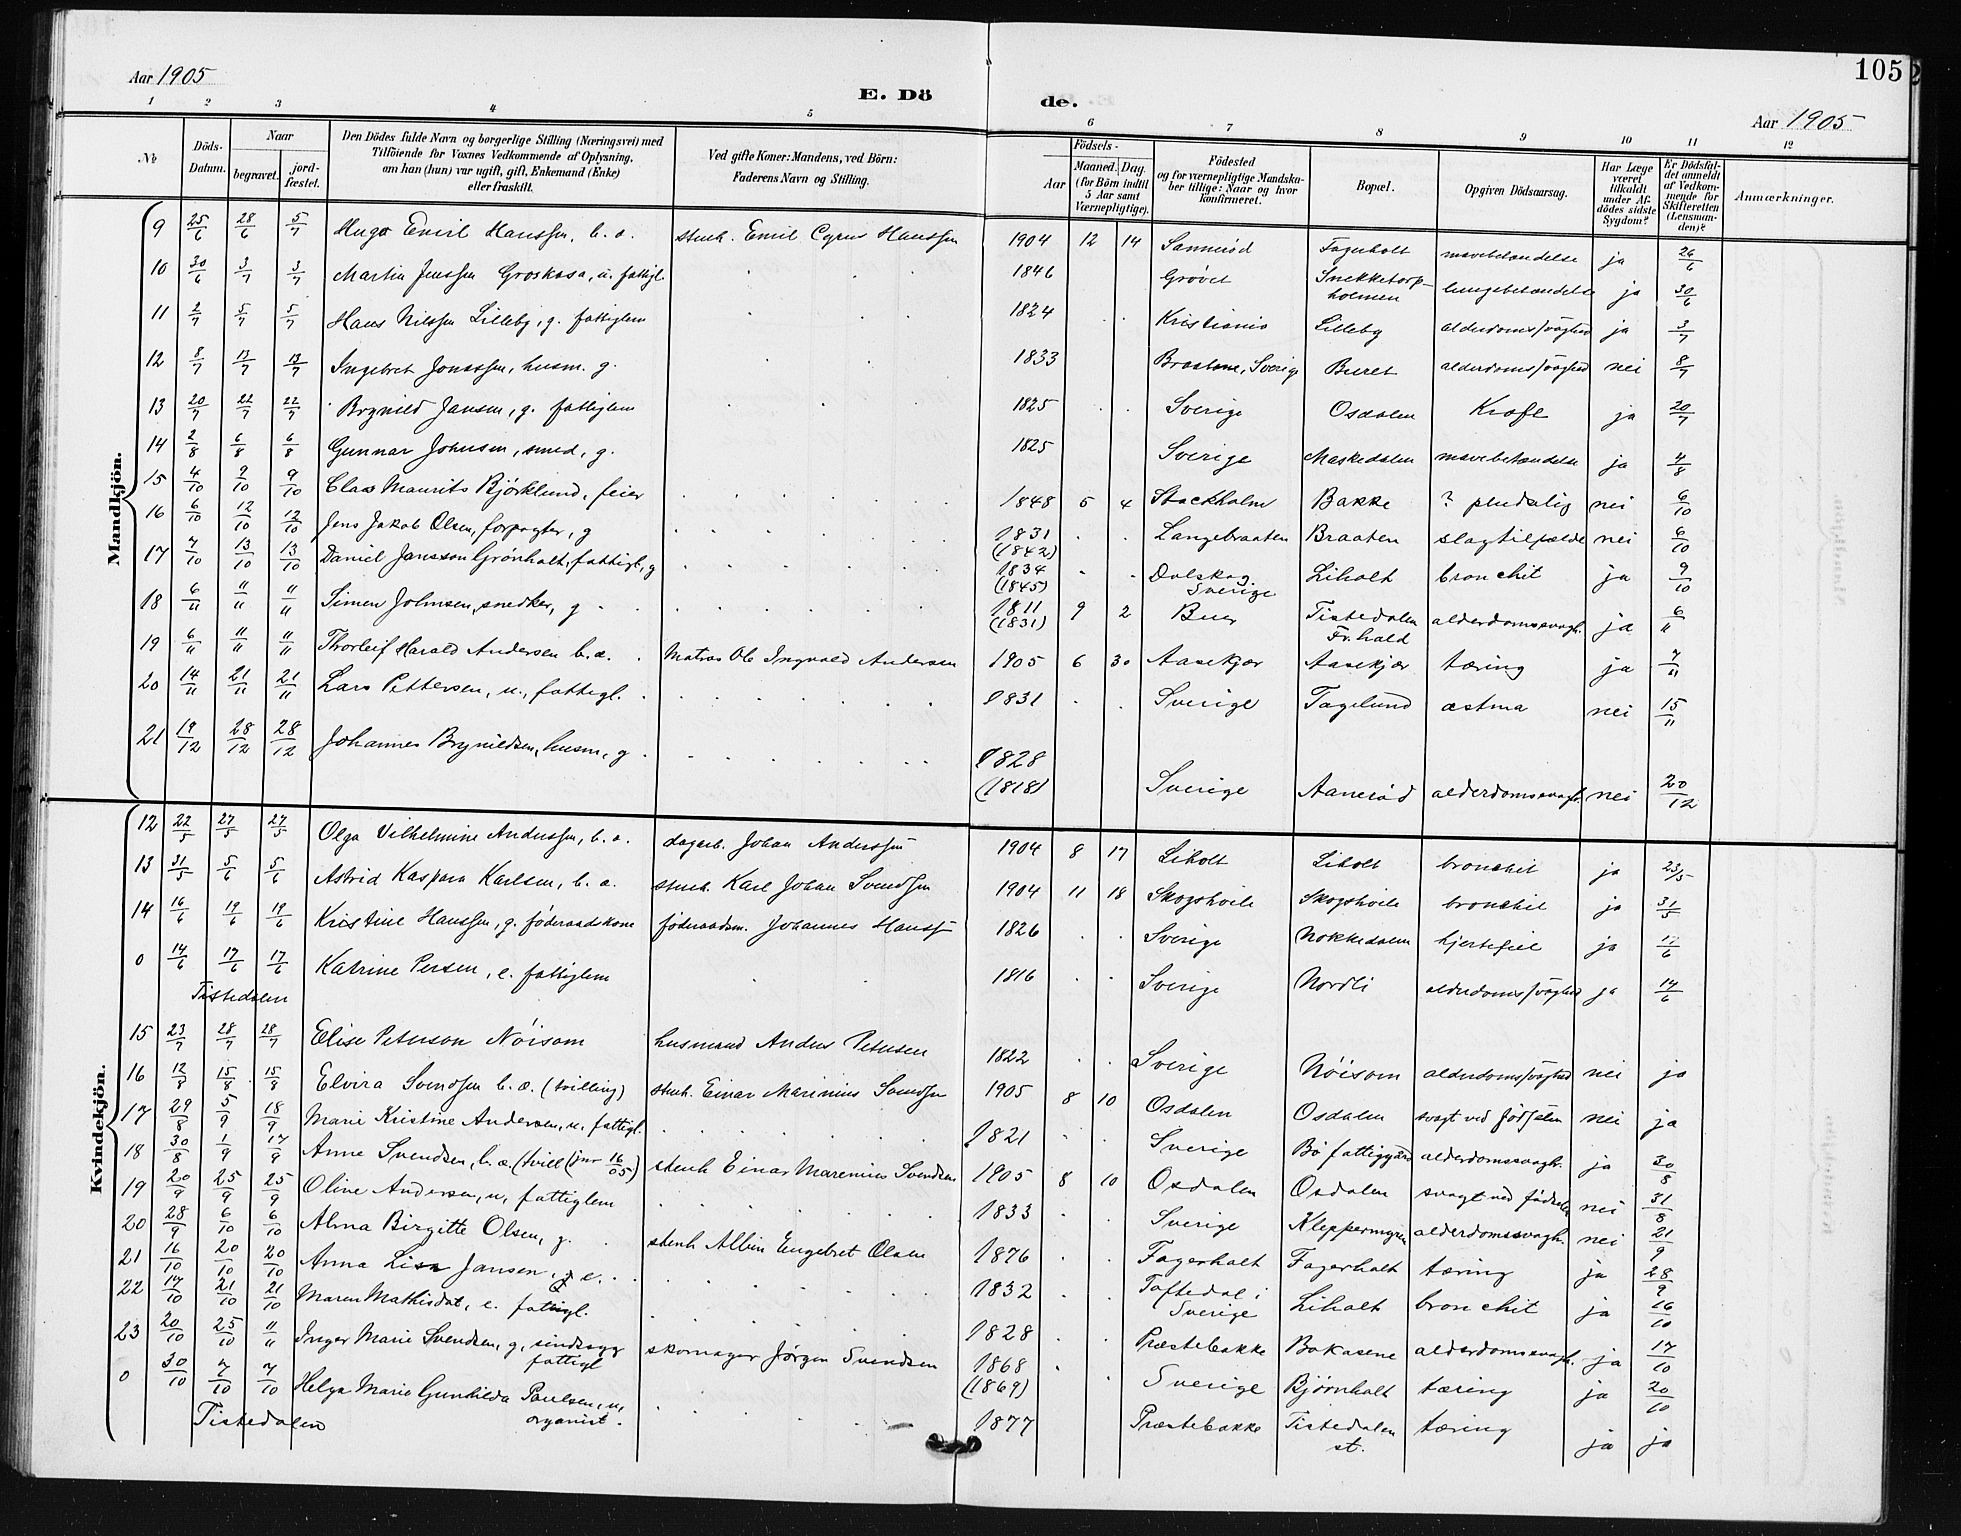 Aar 1905
E. Dö
de.
105
Aar 1905
1 2 3 4 5 6 7 8 9 10 11 12
№
Döds-Datum.
Naar
begravet.
jordfæstet.
Den Dödes fulde Navn og borgerlige Stilling (Næringsvei) med
Tilföiende for Voxnes Vedkommende af Oplysning,
om han (hun) var ugift, gift, Enkemand (Enke)
eller fraskilt.
Ved gifte Koner: Mandens, ved Börn:
Faderens Navn og Stilling.
Födsels-
Aar
Maaned. Dag.
(for Börn indtil
5 Aar samt
Værnepligtige).
Födested
og for værnepligtige Mandskaber tillige: Naar og hvor
konfirmeret.
Bopæl.
Opgiven Dödsaarsag.
Har Læge
været
tilkaldt
under Afdödes sidste
Sygdom?
Er Dödsfaldet anmeldt
af Vedkommende for
Skifteretten
(Lensmanden)?
Anmærkninger.
Mandkjön.
9 25/6 28/6 5/7 Hugo Emil Hanssen, b. a. stenh. Emil Cyrus Hanssen 1904 12 14 Sannerød Fagerholt mavebetændelse ja 26/6
10 30/6 3/7 3/7 Martin Jenssen Groskasa, u. fattigl. 1846 Grøvet Snekketorpholmen lungebetændelse ja 30/6
11 2/7 5/7 5/7 Hans Nilssen Lilleby, g. fattiglem 1824 Kristiania Lilleby alderdomssvaghed ja 3/7
12 8/7 13/7 13/7 Ingebret Jonassen, husm. g. 1833 Braatene, Sverige Buret alderdomssvaghed nei 8/7
13 20/7 22/7 22/7 Brynild Jansen, g. fattiglem 1825 Sverige Osdalen Kræft ja 20/7
14 2/8 6/8 6/8 Gunnar Johnsen, smed, g. 1825 Sverige Maskedalen mavebetændelse ja 4/8
15 4/10 9/10 9/10 Claas Maurits Bjørklund, feier 1848 5 4 Stockholm Bakke ? pludselig nei 6/10
16 6/10 12/10 12/10 Jens Jakob Olsen, forpagter, g 1831 (1842) Langebraaten Braaten slagtilfælde nei 6/10
17 7/10 13/10 13/10 Daniel Jansson Grønholt, fattigl., g 1834 (1845) Dalskog Sverige Liholt bronchit ja 9/10
18 6/11 11/11 11/11 Simen Johnsen, snedker, g 1811 (1831) 9 2 Buer Tistedalen Fr.hald alderdomssvagh. ja 6/11
19 6/11 11/11 11/11 Thorleif Harald Andersen b. æ. Matros Ole Ingvald Andersen 1905 6 30 Aasekjær Aasekjær tæring ja 7/11
20 14/11 21/11 21/11 Lars Pettersen, u., fattigl. 1831 Sverige Fagelund astma nei 15/11
21 19/12 28/12 28/12 Johannes Brynildsen, husm., g 1828 (1818) Sverige Aanerød alderdomssvagh. nei 20/12
Kvindekjön.
12 22/5 27/5 27/5 Olga Vilhelmine Anderssen, b. a. dagarb. Johan Anderssen 1904 8 17 Liholt Liholt bronchit ja 23/5
13 31/5 5/6 5/6 Astrid Kaspara Karlsen, b. a. stenh. Karl Johan Svendsen 1904 11 18 Skogshvile Skogshvile bronchit ja 31/5
14 16/6 19/6 19/6 Kristine Hanssen, g. føderaadskone føderaadsm. Johannes Hanss. 1826 Sverige Nokkedalen hjertefeil ja 17/6
0 14/6 17/6 17/6 Katrine Persen, e. fattiglem 1816 Sverige Nordli alderdomssvaghed ja 14/6
Tistedalen
15 23/7 28/7 28/7 Elise Peterson Nöisom husmand Anders Petersen 1822 Sverige Nöisom alderdomssvaghed nei ja
16 12/8 15/8 15/8 Elvira Svendsen b. æ. (tvilling) stenh. Einar Marinius Svendsen 1905 8 10 Osdalen Osdalen svagt ved fødselen nei ja
17 29/8 5/9 18/9 Marie Kristine Andersen, u. fattigl. 1821 Sverige Bø fattiggård alderdomssvagh. ja 30/8
18 30/8 1/9 17/9 Anne Svendsen, b. æ. (tvill (jnr 16/05) stenh Einar Marenius Svendsen 1905 8 10 Osdalen Osdalen svagt ved fødselen nei 31/8
19 20/9 25/9 25/9 Oline Andersen, u, fattiglem 1833 Sverige Kleppermyren alderdomssvagh. nei 21/9
20 28/9 6/10 6/10 Alma Birgitte Olsen, g. stenh Albin Engebret Olsen 1876 Fagerholt Fagerholt tæring ja 28/9
21 16/10 20/10 20/10 Anna Lisa Jansen, e. 1832 Töftedal i Sverige Liholt bronchit ja 16/10
22 17/10 21/10 21/10 Maren Mathisdat, e. fattigl. 1828 Præstebakke Bakasene alderdomssvagh. ja 17/10
23 20/10 25/10 11/11 Inger Marie Svendsen, g, sindssyg fattigl skomager Jørgen Svendsen 1868 (1869) Sverige Bjørnholt tæring ja 20/10
0 30/10 7/10 7/10 Helga Marie Gunhilda Paulsen, u, organist. 1877 Præstebakke Tistedalen st. tæring ja ja
Tistedalen